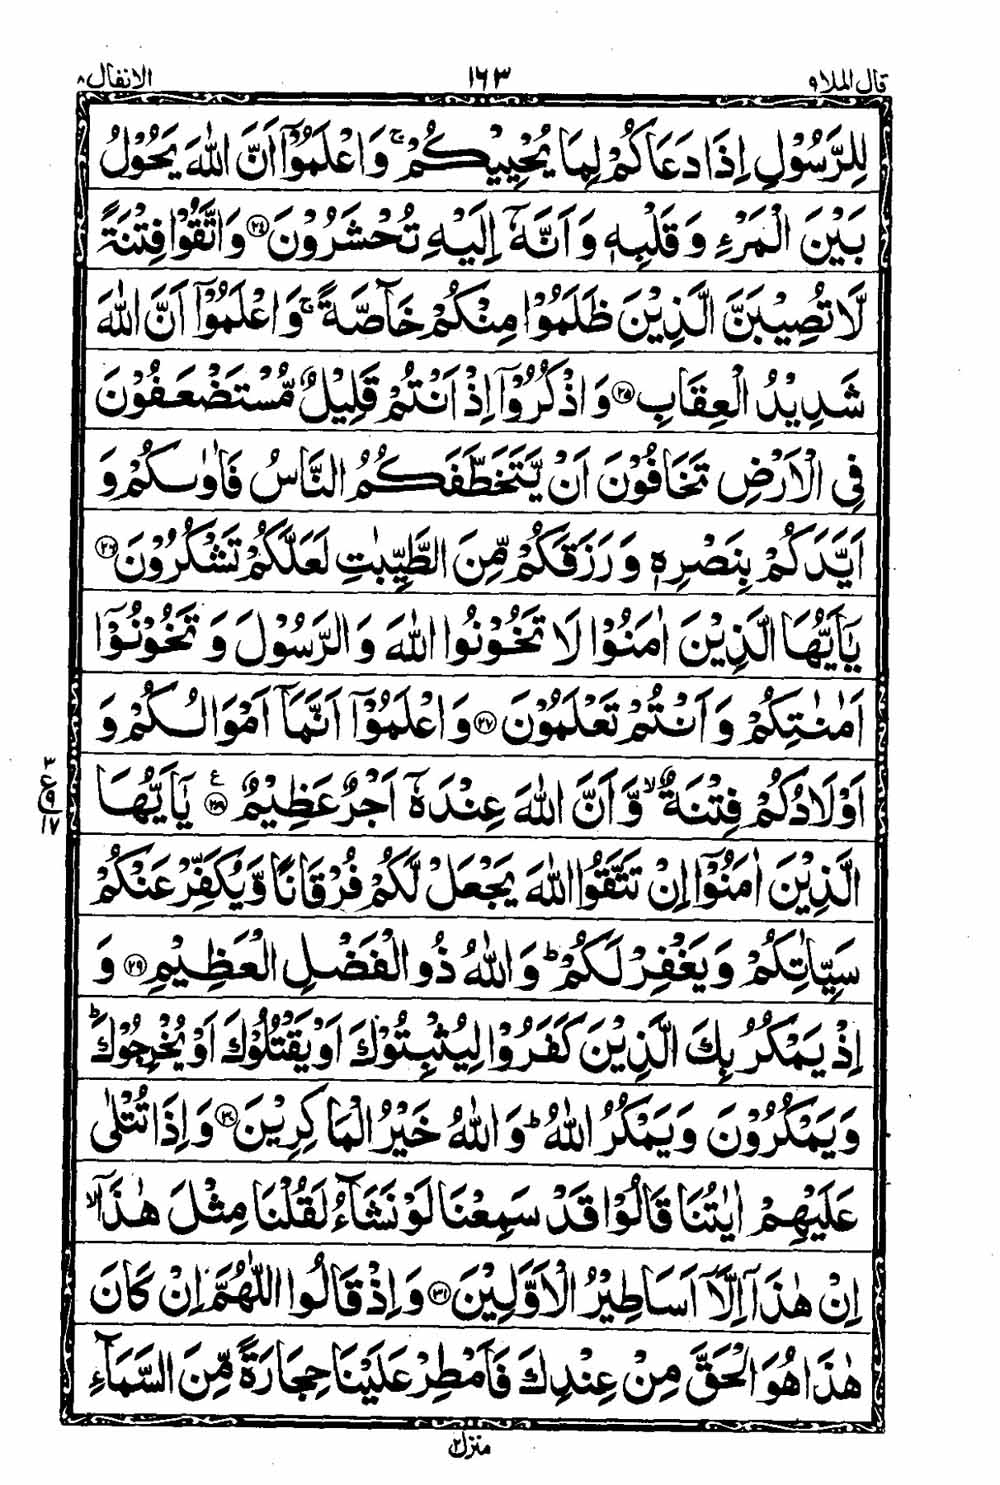 قال الملا٩ ١٦٣ الانفال ٨
لِلرَّسُوْلِ اِذَا دَعَاكُمْ لِمَا يُحْيِيْكُمْ ۚ وَاعْلَمُوْۤا اَنَّ اللّٰهَ يَحُوْلُ
بَيْنَ الْمَرْءِ وَقَلْبِهٖ وَاَنَّهٗۤ اِلَيْهِ تُحْشَرُوْنَ ﴿۲۴﴾ وَاتَّقُوْا فِتْنَةً
لَّا تُصِيْبَنَّ الَّذِيْنَ ظَلَمُوْا مِنْكُمْ خَآصَّةً ۚ وَاعْلَمُوْۤا اَنَّ اللّٰهَ
شَدِيْدُ الْعِقَابِ ﴿۲۵﴾ وَاذْكُرُوْۤا اِذْ اَنْتُمْ قَلِيْلٌ مُّسْتَضْعَفُوْنَ
فِي الْاَرْضِ تَخَافُوْنَ اَنْ يَّتَخَطَّفَكُمُ النَّاسُ فَاٰوٰىكُمْ وَ
اَيَّدَكُمْ بِنَصْرِهٖ وَرَزَقَكُمْ مِّنَ الطَّيِّبٰتِ لَعَلَّكُمْ تَشْكُرُوْنَ ﴿۲۶﴾
يٰۤاَيُّهَا الَّذِيْنَ اٰمَنُوْا لَا تَخُوْنُوا اللّٰهَ وَالرَّسُوْلَ وَتَخُوْنُوْۤا
اَمٰنٰتِكُمْ وَاَنْتُمْ تَعْلَمُوْنَ ﴿۲۷﴾ وَاعْلَمُوْۤا اَنَّمَاۤ اَمْوَالُكُمْ وَ
اَوْلَادُكُمْ فِتْنَةٌ ۙ وَّاَنَّ اللّٰهَ عِنْدَهٗۤ اَجْرٌ عَظِيْمٌ ﴿۲۸﴾ ع يٰۤاَيُّهَا
٣ ع ٩ ١٧
الَّذِيْنَ اٰمَنُوْۤا اِنْ تَتَّقُوا اللّٰهَ يَجْعَلْ لَّكُمْ فُرْقَانًا وَّيُكَفِّرْ عَنْكُمْ
سَيِّاٰتِكُمْ وَيَغْفِرْ لَكُمْ ؕ وَاللّٰهُ ذُو الْفَضْلِ الْعَظِيْمِ ﴿۲۹﴾ وَ
اِذْ يَمْكُرُ بِكَ الَّذِيْنَ كَفَرُوْا لِيُثْبِتُوْكَ اَوْ يَقْتُلُوْكَ اَوْ يُخْرِجُوْكَ ؕ
وَيَمْكُرُوْنَ وَيَمْكُرُ اللّٰهُ ؕ وَاللّٰهُ خَيْرُ الْمَاكِرِيْنَ ﴿۳۰﴾ وَاِذَا تُتْلٰى
عَلَيْهِمْ اٰيٰتُنَا قَالُوْا قَدْ سَمِعْنَا لَوْ نَشَآءُ لَقُلْنَا مِثْلَ هٰذَاۤ ۙ
اِنْ هٰذَاۤ اِلَّاۤ اَسَاطِيْرُ الْاَوَّلِيْنَ ﴿۳۱﴾ وَاِذْ قَالُوا اللّٰهُمَّ اِنْ كَانَ
هٰذَا هُوَ الْحَقَّ مِنْ عِنْدِكَ فَاَمْطِرْ عَلَيْنَا حِجَارَةً مِّنَ السَّمَآءِ
منزل ۲